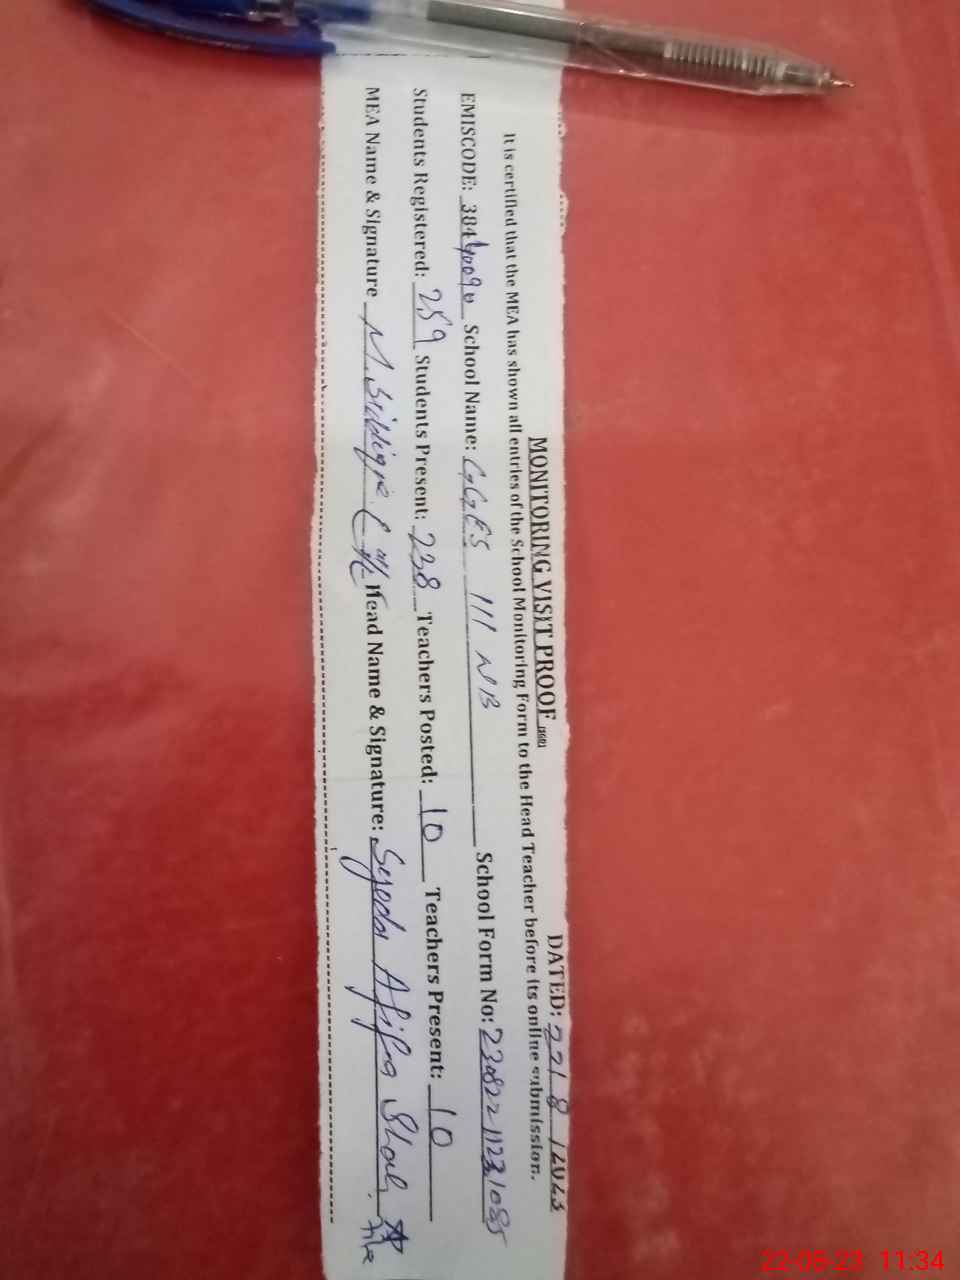 MONITORING VISIT PROOF DATED: 22/ 8 /2023
It is certified that the MEA has shown all entries of the School Monitoring Form to the Head Teacher before its online submission.
EMISCODE: 38440090 School Name: GGES 111 NB School Form No: 23082211231085
Students Registered: 259 Students Present: 238 Teachers Posted: 10 Teachers Present: 10
MEA Name & Signature M. Siddique Head Name & Signature: Syeda Afifa Shah
22-08-23 11:34